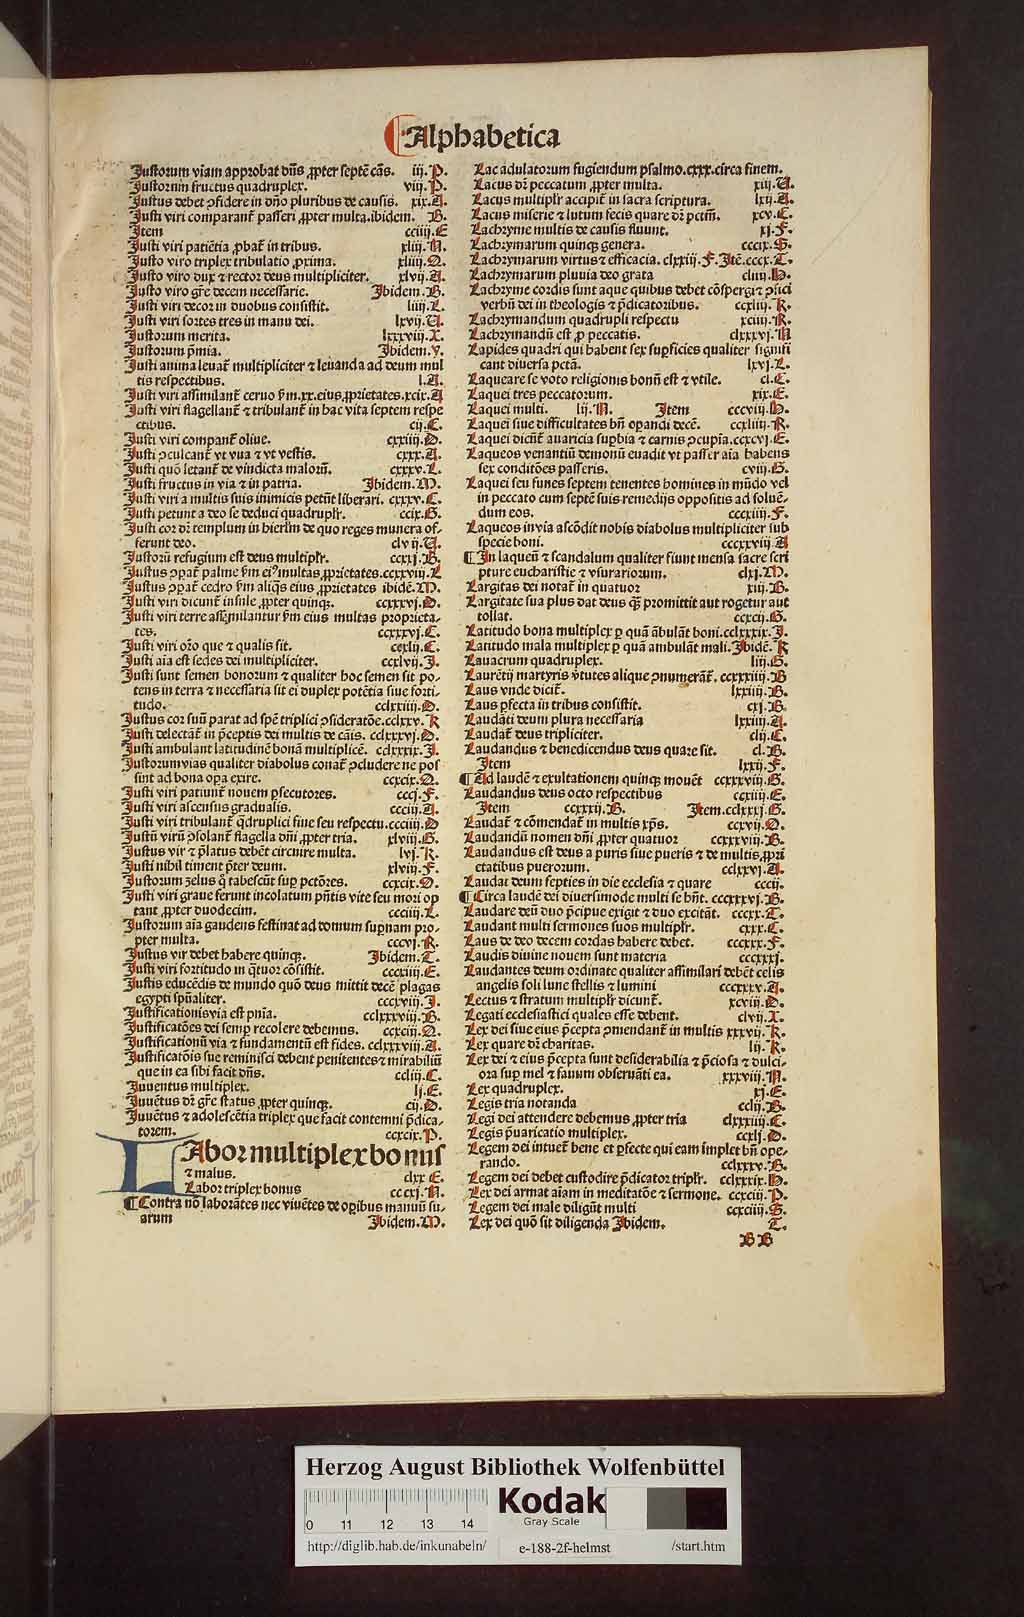 Alphabetica
Justorum viam approbat dn̄s ꝓpter septē cās. iij. P.
Justorum fructus quadruplex. viij. P.
Justus debet ꝯfidere in dn̄o pluribus de causis. xix. A.
Justi viri comparant̄ passeri ꝓpter multa. ibidem. B.
Item cciiij. E
Justi viri patiētia ꝓbat̄ in tribus. xliij. N.
Justo viro triplex tribulatio ꝓxima. xliiij. O.
Justo viro dux ⁊ rector deus multipliciter. xlvij. A.
Justo viro gr̄e decem necessarie. Ibidem. B.
Justi viri decor in duobus consistit. liiij. L.
Justi viri sortes tres in manu dei. lxvij. U.
Justorum merita. lxxxviij. X.
Justorum p̄mia. Ibidem. Y.
Justi anima leuat̄ multipliciter ⁊ leuanda ad deum mul
tis respectibus. l. A.
Justi viri assimilant̄ ceruo ẜm. xx. eius ꝓprietates. xcix. A
Justi viri flagellant̄ ⁊ tribulant̄ in hac vita septem respe
ctibus. cij. C.
Justi viri compant̄ oliue. cxxiij. O.
Justi ꝯculcant̄ vt vua ⁊ vt vestis. cxxx. A.
Justi quō letant̄ de vindicta malorū. cxxxv. L.
Justi fructus in via ⁊ in patria. Ibidem. M.
Justi viri a multis suis inimicis petūt liberari. cxxxv. C.
Justi petunt a deo se deduci quadruplr̄. ccix. G.
Justi cor dr̄ templum in hierl̄m de quo reges munera of-
ferunt deo. clvij. U.
Justorū refugium est deus multiplr̄. ccxxj. B.
Justus ꝯpat̄ palme ẜm eiꝰ multas ꝓprietates. ccxxviij. L
Justus ꝯpat̄ cedro ẜm aliqs̄ eius ꝓprietates ibidē. M.
Justi viri dicunt̄ insule ꝓpter quinqꝫ. ccxxxvj. O.
Justi viri terre assimilantur ẜm eius multas proprieta-
tes. ccxxxvj. C.
Justi viri or̄o que ⁊ qualis sit. ccxlij. C.
Justi aīa est sedes dei multipliciter. ccxlvij. J.
Justi sunt semen bonorum ⁊ qualiter hoc semen sit po-
tens in terra ⁊ necessaria sit ei duplex potētia siue forti-
tudo. cclxxiiij. O.
Justus cor suū parat ad spē triplici ꝯsideratōe. cclxxv. K
Justi delectāt̄ in p̄ceptis dei multis de cāis. cclxxvj. O.
Justi ambulant latitudinē bonā multiplicē. cclxxxix. J.
Justorum vias qualiter diabolus conat̄ ꝯcludere ne pos
sint ad bona oꝑa exire. ccxcix. O.
Justi viri patiunt̄ nouem ꝑsecutores. cccj. F.
Justi viri ascensus gradualis. ccciij. A.
Justi viri tribulant̄ q̄druplici siue seu respectu. ccciiij. O
Justū virū ꝯsolant̄ flagella dn̄i ꝓpter tria. xlviij. G.
Justus vir ⁊ p̄latus debēt circuire multa. lvj. K.
Justi nihil timent p̄ter deum. xlviij. F.
Justorum zelus q̄ tabescūt suꝑ pctōres. ccxcix. O.
Justi viri graue ferunt incolatum pn̄tis vite seu mori op
tant ꝓpter duodecim. ccciiij. L.
Justorum aīa gaudens festinat ad domum suꝑnam pro-
pter multa. cccvj. R.
Justus vir debet habere quinqꝫ. Ibidem. T.
Justi viri fortitudo in q̄tuor cōsistit. cccxiij. E.
Justis educēdis de mundo quō deus mittit decē plagas
egypti spūaliter. cccxviij. J.
Justificationis via est pn̄ia. cclxxxviij. B.
Justificatōes dei semꝑ recolere debemus. ccxciij. O.
Justificationū via ⁊ fundamentū est fides. cclxxxviij. A.
Justificatōis sue reminisci debent penitentes ⁊ mirabiliū
que in ea sibi facit dn̄s. ccliij. C.
Juuentus multiplex. lj. E.
Juuētus dr̄ gr̄e status ꝓpter quinqꝫ. cij. O.
Juuētus ⁊ adolescētia triplex que facit contemni p̄dica-
torem. ccxcix. P.
LAbor multiplex bonus
⁊ malus. clxx E.
Labor triplex bonus cccxj. N.
¶ Contra nō laborātes nec viuētes de oꝑibus manuū su-
arum Ibidem. M.
Lac adulatorum fugiendum psalmo. cxxx. circa finem.
Lacus dr̄ peccatum ꝓpter multa. xiij. U.
Lacus multiplr̄ accipit̄ in sacra scriptura. lxij. A.
Lacus miserie ⁊ lutum fecis quare dr̄ pctm̄. xcv. C.
Lachryme multis de causis fluunt. xj. F.
Lachrymarum quinqꝫ genera. cccix. S.
Lachrymarum virtus ⁊ efficacia. clxxiij. F. Itē. cccx. T.
Lachrymarum pluuia deo grata cliiij. H.
Lachryme cordis sunt aque quibus debet cōspergi ⁊ ꝯfici
verbū dei in theologis ⁊ p̄dicatoribus. ccxliij. K.
Lachrymandum quadrupli respectu xciiij. R.
Lachrymandū est ꝓ peccatis. clxxxvj. N
Lapides quadri qui habent sex suꝑficies qualiter signifi
cant diuersa pctā. lxvj. L.
Laqueare se voto religionis bonū est ⁊ vtile. cl. C.
Laquei tres peccatorum. xix. E.
Laquei multi. lij. N. Item cccviij. H.
Laquei siue difficultates bn̄ oꝑandi decē. ccxliiij. R.
Laquei dicūt̄ auaricia suꝑbia ⁊ carnis ꝯcupīa. ccxcvj. E.
Laqueos venantiū demonū euadit vt passer aīa habens
sex conditōes passeris. cviij. G.
Laquei seu funes septem tenentes homines in mūdo vel
in peccato cum septē suis remedijs oppositis ad soluē-
dum eos. cccxiiij. F.
Laqueos in via ascōdit nobis diabolus multipliciter sub
specie boni. cccxxviij. A
¶ In laqueū ⁊ scandalum qualiter fiunt mensa sacre scri
pture eucharistie ⁊ vsurariorum. clxj. M.
Largitas dei notat̄ in quatuor xiij. B.
Largitate sua plus dat deus qꝫ promittit aut rogetur aut
tollat. ccxcij. G.
Latitudo bona multiplex ꝑ quā ābulāt boni. cclxxxix. J.
Latitudo mala multiplex ꝑ quā ambulāt mali. Ibidē. K
Lauacrum quadruplex. liij. G.
Laurētij martyris v̄tutes alique ꝯnumerāt̄. ccxxxiiij. B
Laus vnde dicit̄. lxxiiij. B.
Laus ꝑfecta in tribus consistit. cxj. B.
Laudāti deum plura necessaria lxxiiij. A.
Laudat̄ deus tripliciter. cliij. C.
Laudandus ⁊ benedicendus deus quare sit. cl. B.
Item lxxij. F.
¶ Ad laudē ⁊ exultationem quinqꝫ mouēt ccxxxviij. G.
Laudandus deus octo respectibus ccxiiij. E.
Item ccxxxij. B. Item. cclxxxj. G.
Laudat̄ ⁊ cōmendat̄ in multis xp̄s. ccxvij. O.
Laudandū nomen dn̄i ꝓpter quatuor ccxxxviij. B.
Laudandus est deus a puris siue pueris ⁊ de multis ꝓpri
etatibus puerorum. cclxxvj. A.
Laudat deum septies in die ecclesia ⁊ quare cccij.
¶ Circa laudē dei diuersimode multi se hn̄t. cccxxxvj. B.
Laudare deū duo p̄cipue exigit ⁊ duo excitāt. cccxx. T.
Laudant multi sermones suos multiplr̄. cxxx. C.
Laus de deo decem cordas habere debet. cccxxx. F.
Laudis diuine nouem sunt materia cccxxxj.
Laudantes deum ordinate qualiter assimilari debēt celis
angelis soli lune stellis ⁊ lumini cccxxxv. A.
Lectus ⁊ stratum multiplr̄ dicunt̄. xcviij. O.
Legati ecclesiastici quales esse debent. clvij. X.
Lex dei siue eius p̄cepta ꝯmendant̄ in multis xxxvij. K.
Lex quare dr̄ charitas. lij. K.
Lex dei ⁊ eius p̄cepta sunt desiderabilia ⁊ p̄ciosa ⁊ dulci-
ora suꝑ mel ⁊ fauum obseruāti ea. xxxviij. N.
Lex quadruplex. xj. E.
Legis tria notanda cclij. B.
Legi dei attendere debemus ꝓpter tria clxxxiiij. C.
Legis p̄uaricatio multiplex. ccxlj. O.
Legem dei intuet̄ bene et ꝑfecte qui eam implet bn̄ ope-
rando. cclxxxv. B.
Legem dei debet custodire p̄dicator triplr̄. cclxxxix. H.
Lex dei armat aīam in meditatōe ⁊ sermone. ccxciij. P.
Legem dei male diligūt multi ccxciiij. S.
Lex dei quō sit diligenda Ibidem. T.
BB
Herzog August Bibliothek Wolfenbüttel
0 11 12 13 14
Kodak
Gray Scale
http://diglib.hab.de/inkunabeln/ e-188-2f-helmst /start.htm